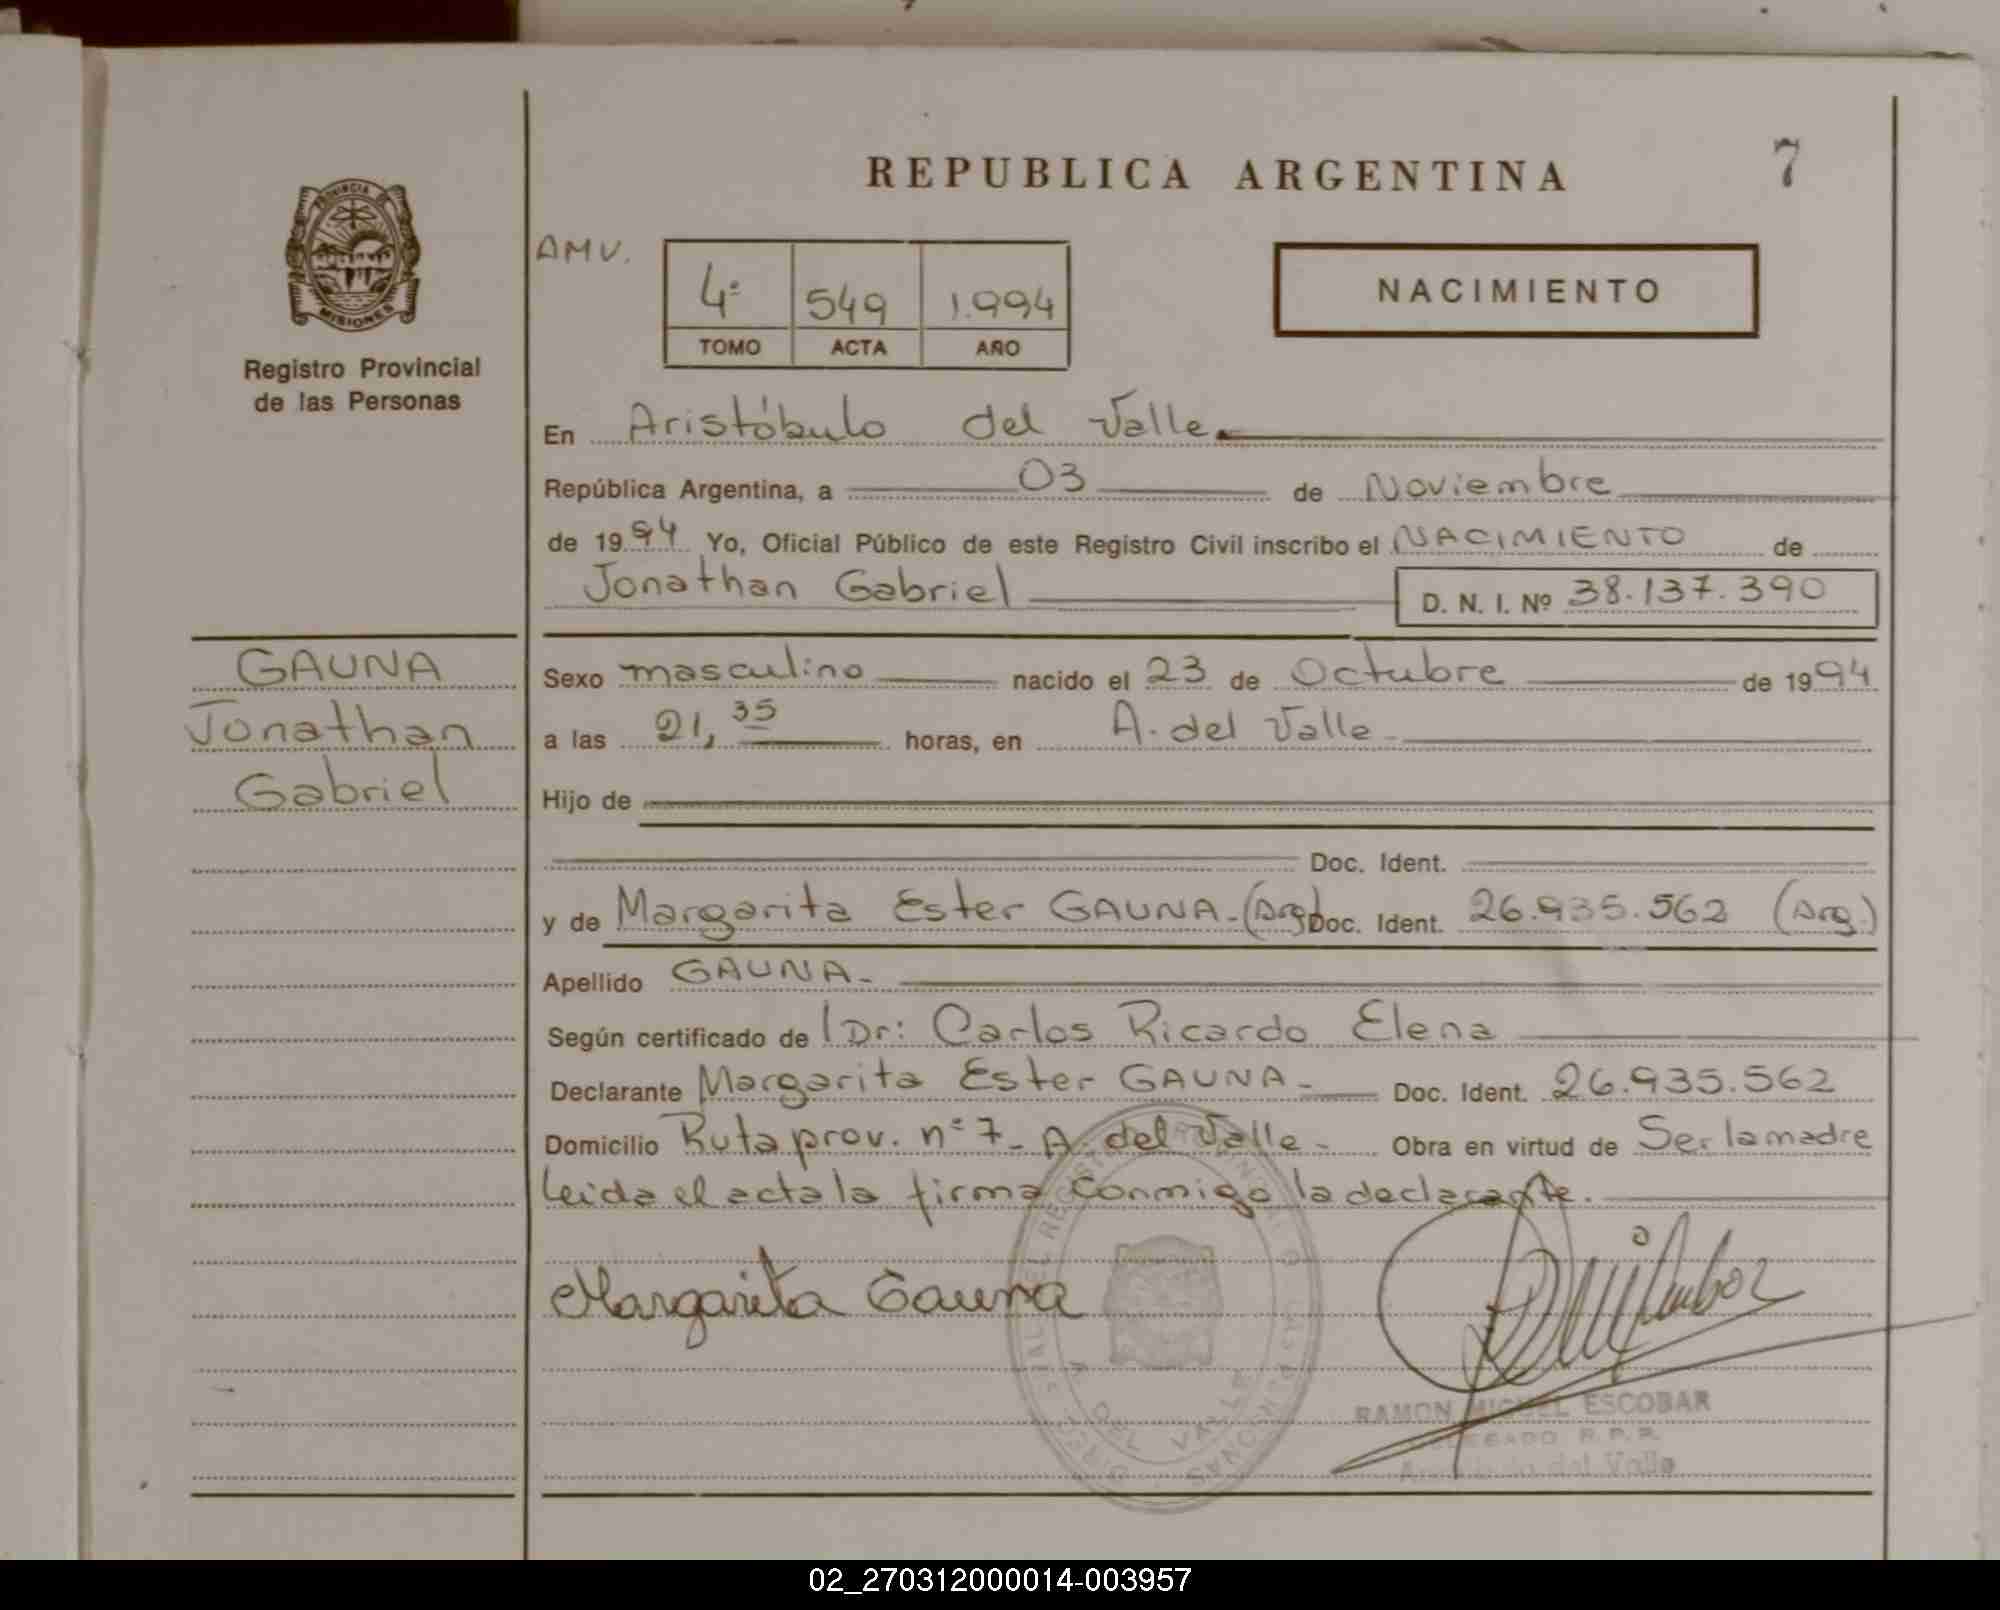 REPUBLICA ARGENTINA
7
PROVINCIA DE
MISIONES
Registro Provincial
de las Personas
AMV.
4º 549 1.994
TOMO ACTA AÑO
NACIMIENTO
En Aristóbulo del Valle.
República Argentina, a 03 de Noviembre
de 1994 Yo, Oficial Público de este Registro Civil inscribo el NACIMIENTO de
Jonathan Gabriel D. N. I. Nº 38.137.390
GAUNA
Jonathan
Gabriel
Sexo masculino nacido el 23 de Octubre de 1994
a las 21,35 horas, en A. del Valle
Hijo de
Doc. Ident.
y de Margarita Ester GAUNA-(Arg) Doc. Ident. 26.935.562 (Arg.)
Apellido GAUNA-
Según certificado de Dr: Carlos Ricardo Elena
Declarante Margarita Ester GAUNA- Doc. Ident. 26.935.562
Domicilio Ruta prov. nº 7- A. del Valle- Obra en virtud de Ser la madre
Leida el acta la firma conmigo la declarante.
Margarita Gauna
A. DEL VALLE
RAMON MIGUEL ESCOBAR
DELEGADO R.P.P.
del Valle
02_270312000014-003957